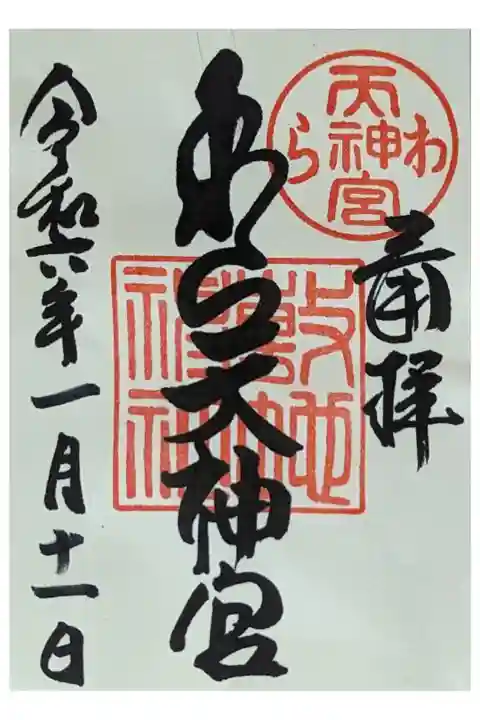 奉拝
わら天神宮
令和六年一月十一日
わら天神宮